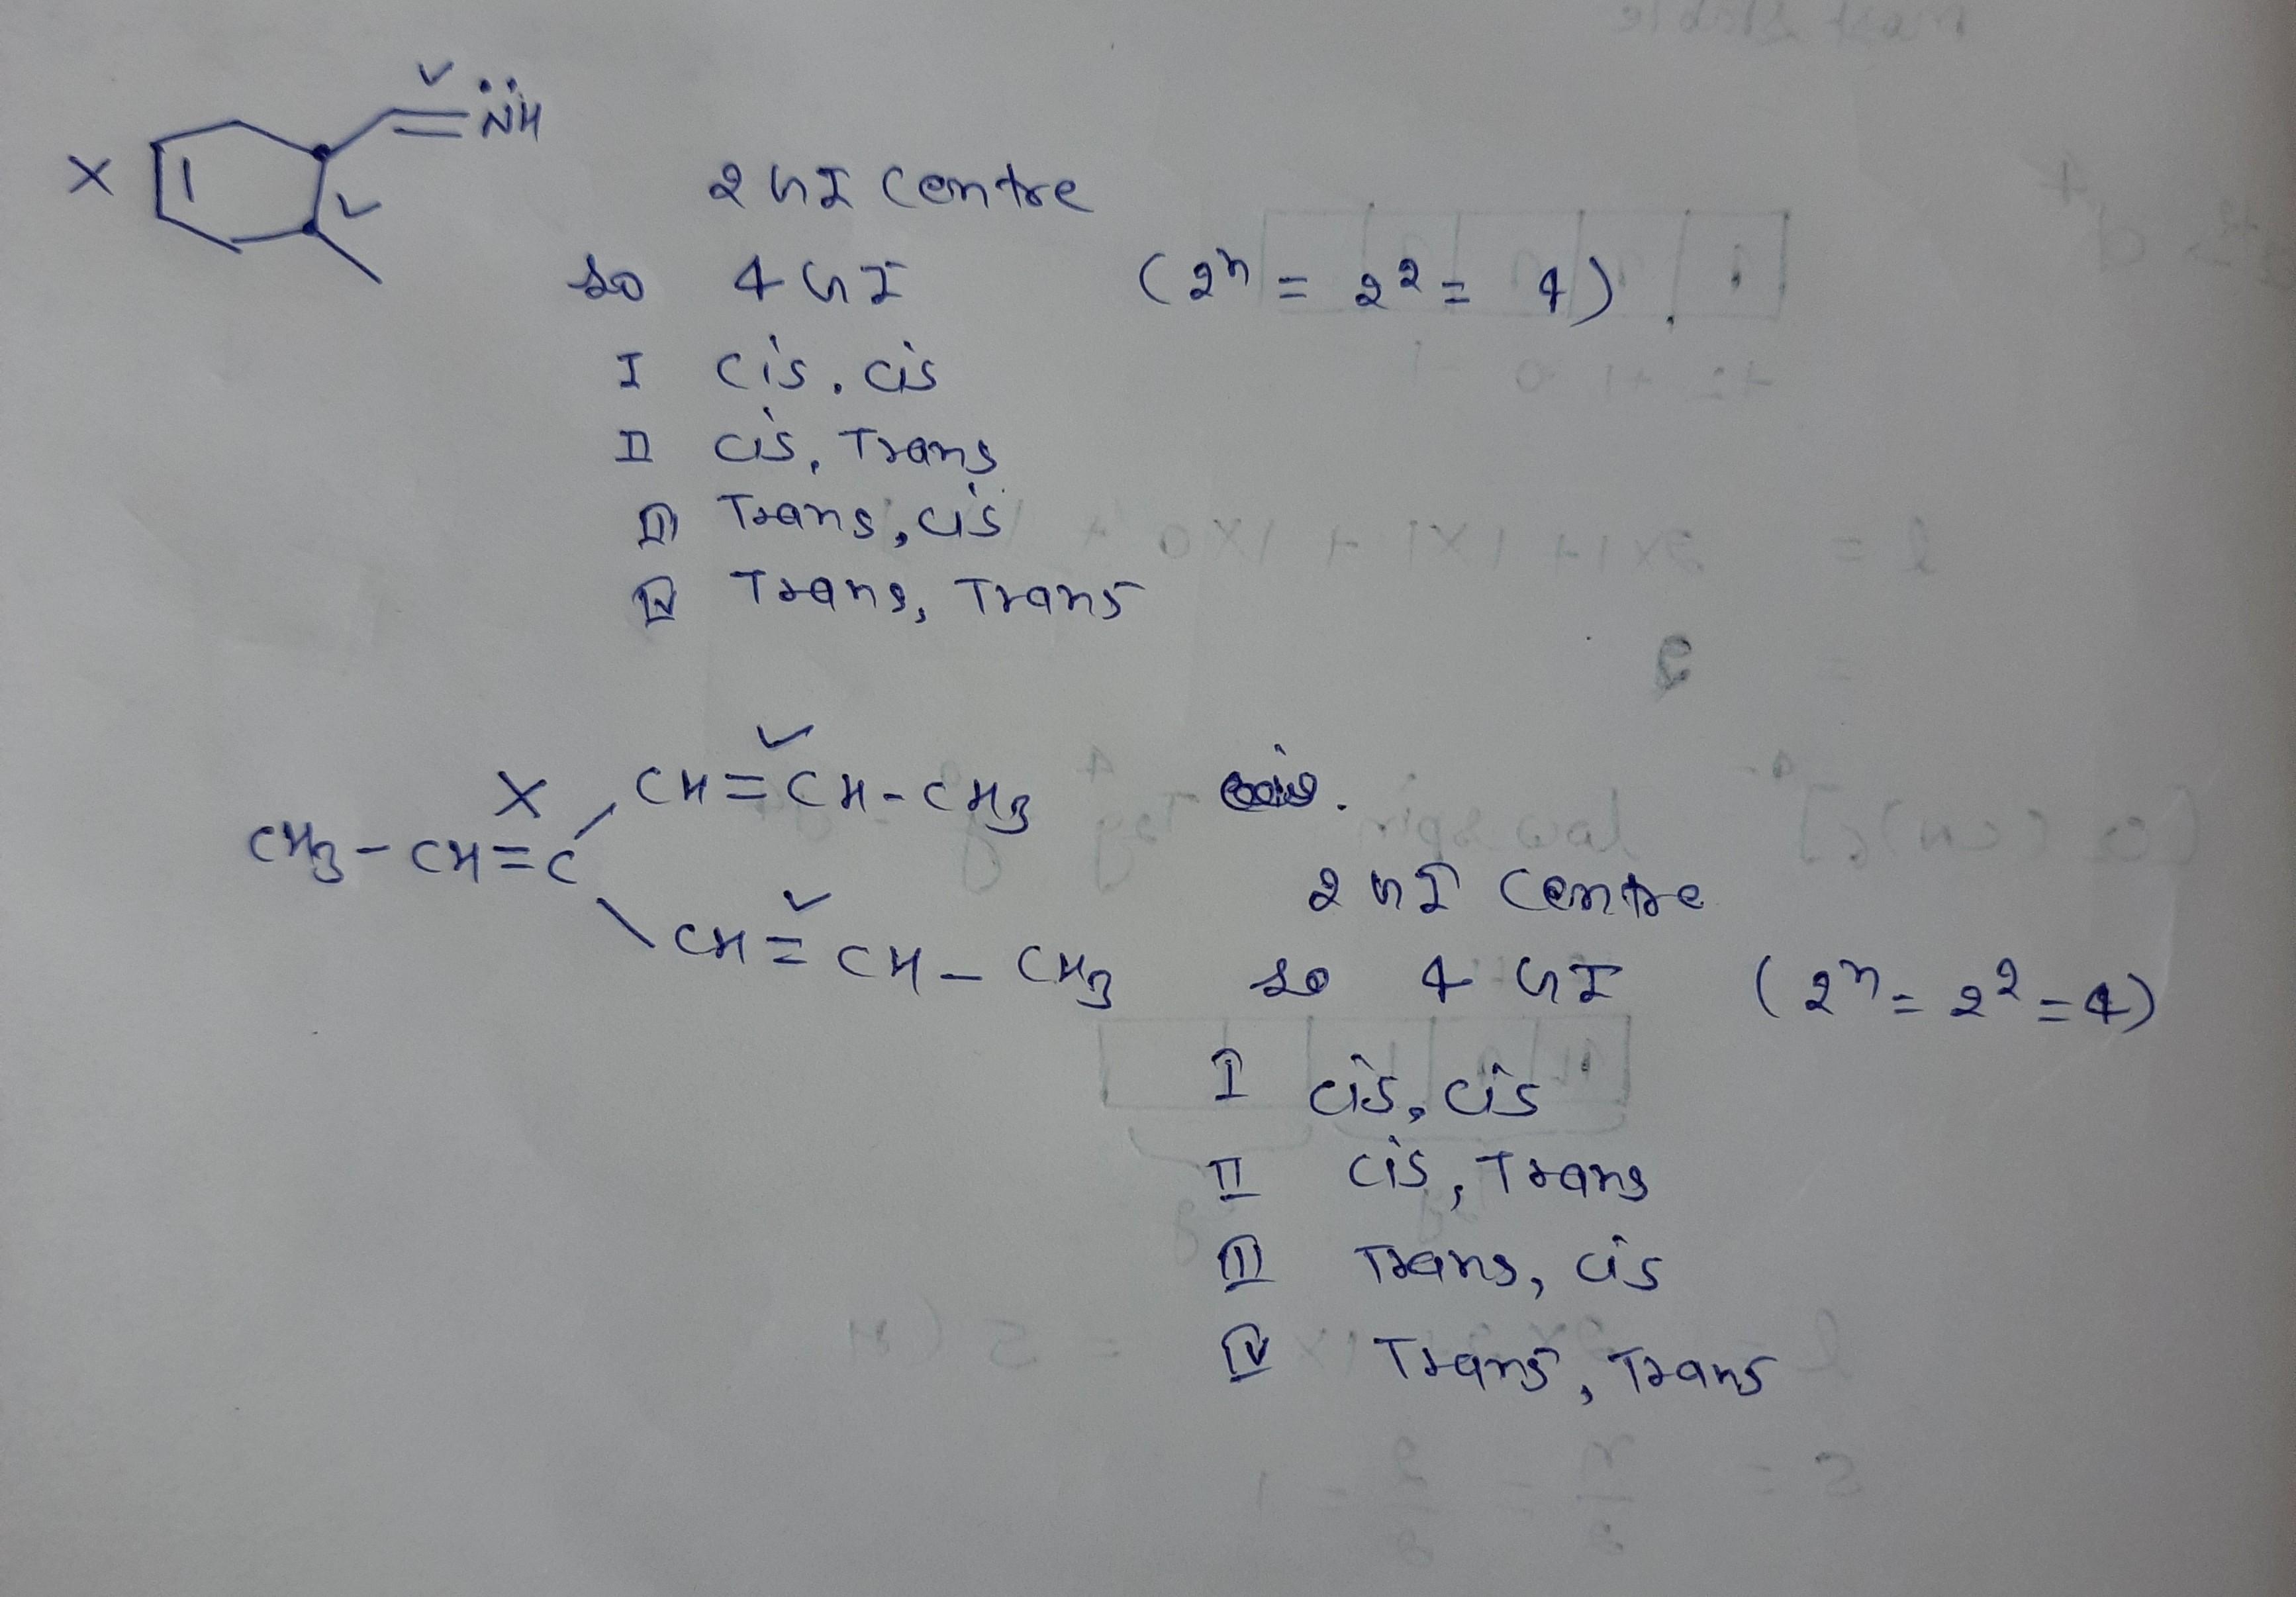 X NH
2 GI centre
so 4 GI (2ⁿ = 2² = 4)
I cis, cis
II cis, Trans
III Trans, cis
IV Trans, Trans
X CH=CH-CH3
CH3-CH=C
CH=CH-CH3
2 GI centre
so 4 GI (2ⁿ = 2² = 4)
I cis, cis
II cis, Trans
III Trans, cis
IV Trans, Trans